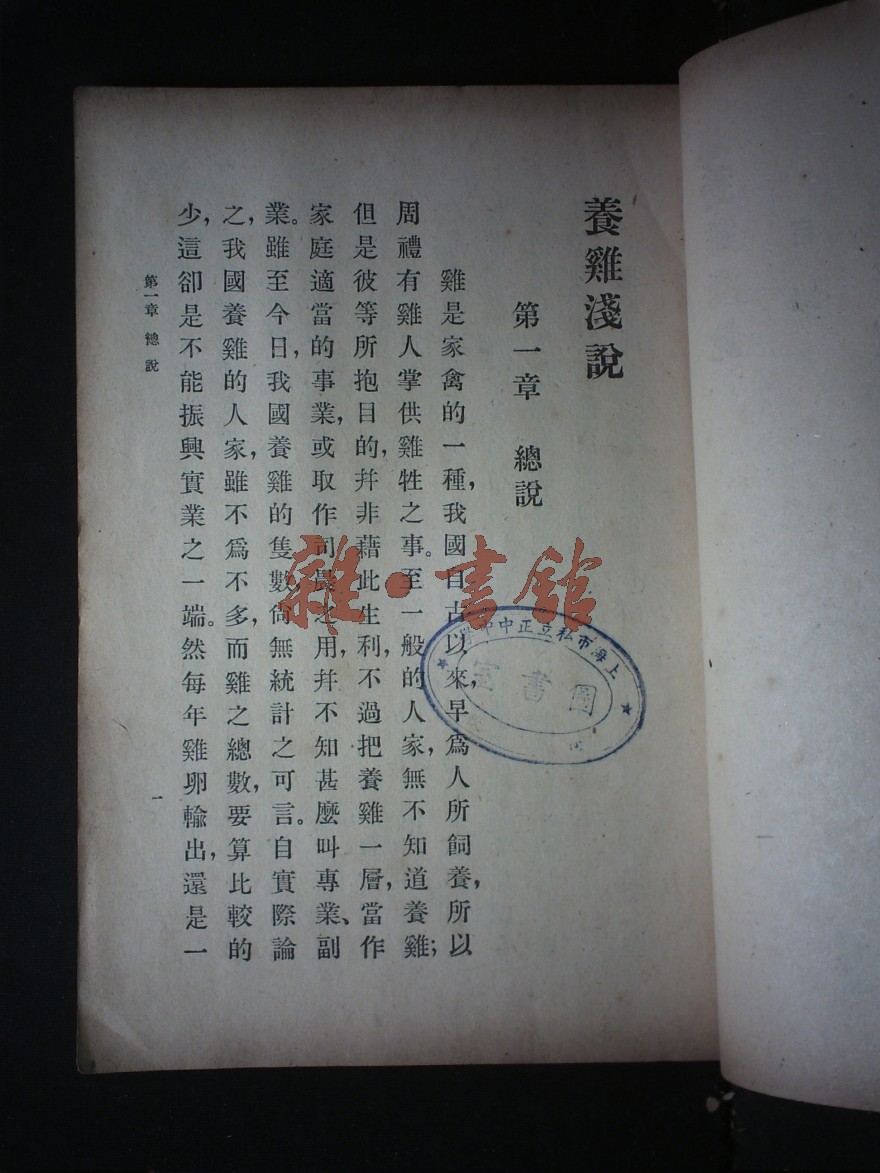 養雞淺說
第一章 總說
雞是家禽的一種,我國自古以來,早爲人所飼養,所以
周禮有雞人掌供雞牲之事。至一般的人家,無不知道養雞;
但是彼等所抱目的,幷非藉此生利,不過把養雞一層,當作
家庭適當的事業,或取作司晨之用,幷不知甚麼叫專業、副
業。雖至今日,我國養雞的隻數,尙無統計之可言。自實際論
之,我國養雞的人家,雖不爲不多,而雞之總數,要算比較的
少,這卻是不能振興實業之一端。然每年雞卵輸出,還是一
第一章 總說
一
雜·書館
上海市私立正中中
圖書室